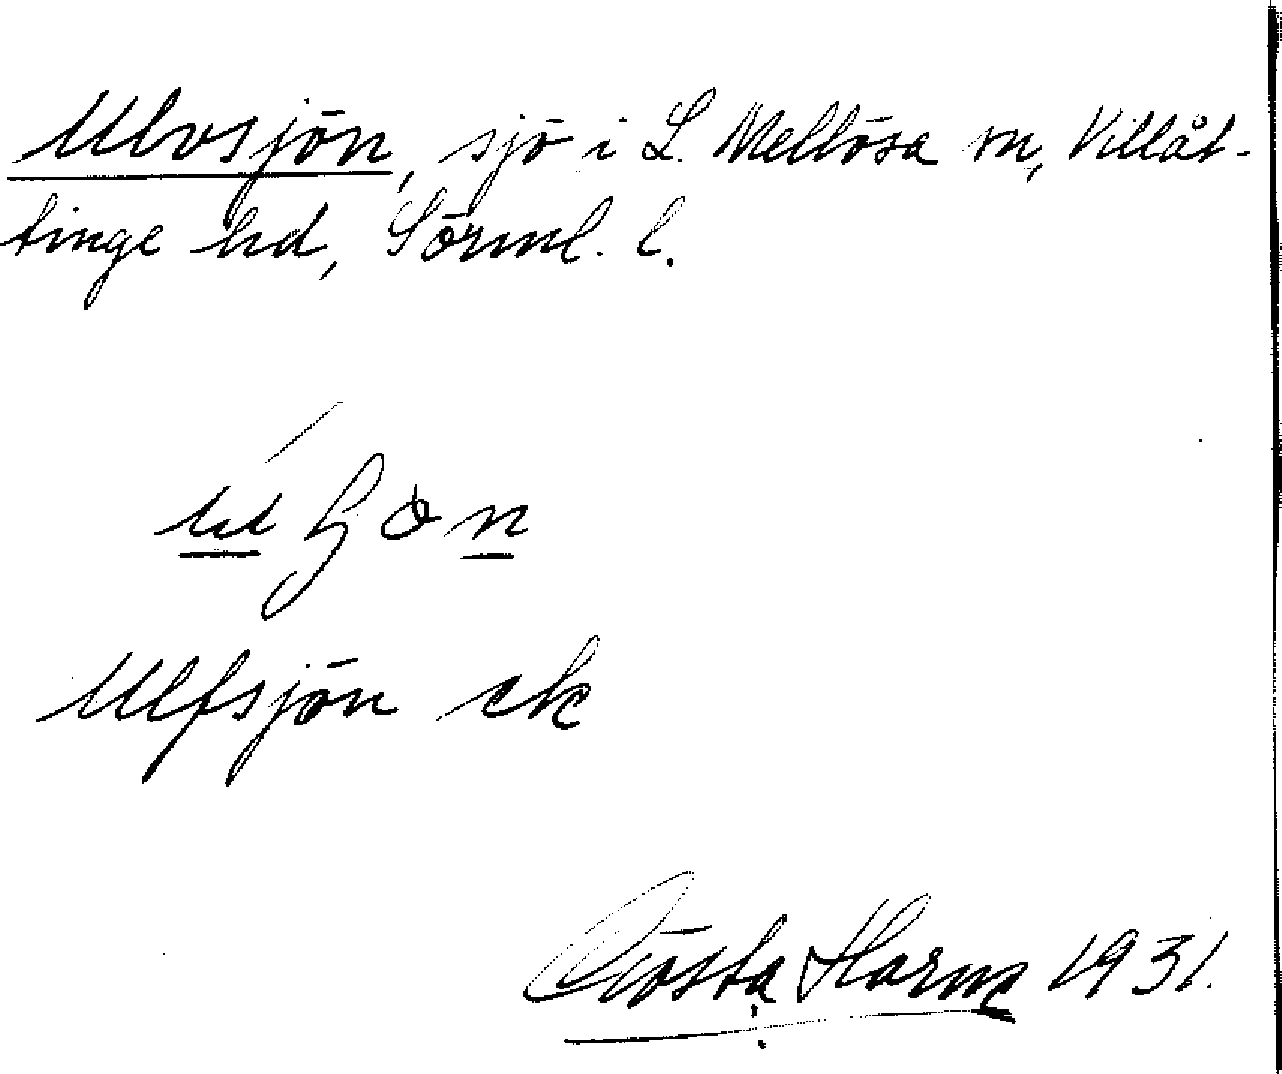 Ulvsjön, sjö i L. Mellösa sn, Villåt-
tinge hd, Sörml. l.
Ulfsjön ek
Gösta Harme 1931.